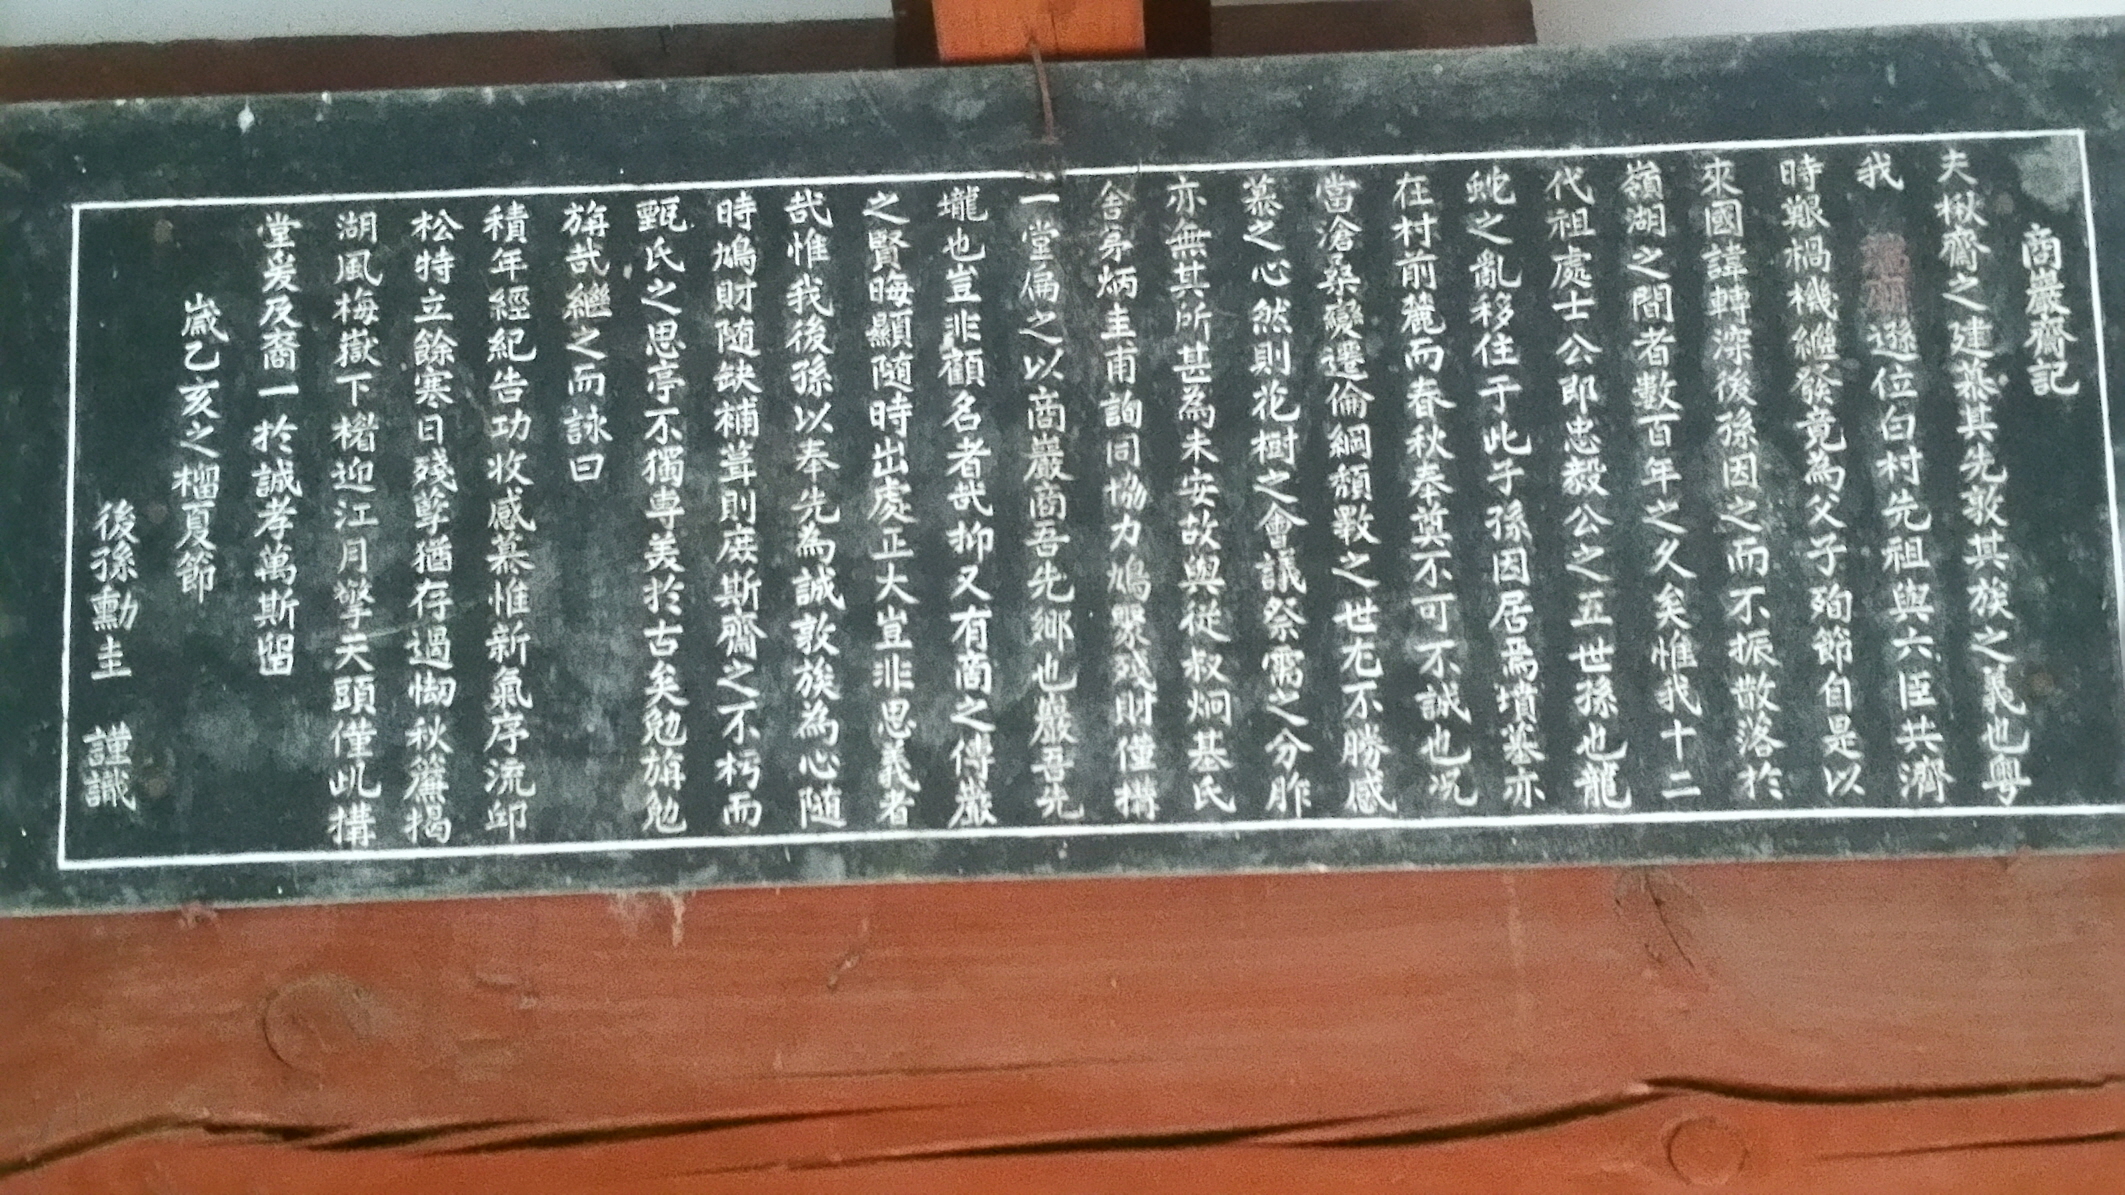 商巖齋記
夫楸齋之建慕其先敦其族之義也粤
我 端廟遜位白村先祖與六臣共濟
時艱禍機繼發竟為父子殉節自是以
來國諱轉深後孫因之而不振散落於
嶺湖之間者數百年之久矣惟我十二
代祖處士公即忠毅公之五世孫也龍
蛇之亂移住于此子孫因居焉墳墓亦
在村前麓而春秋奉奠不可不誠也况
當滄桑變遷倫綱頹斁之世尤不勝感
慕之心然則花樹之會議祭需之分胙
亦無其所甚為未安故與從叔炯基氏
舍弟炳圭甫詢同協力鳩聚殘財僅構
一堂扁之以商巖商吾先鄉也巖吾先
壠也豈非顧名者哉抑又有商之傅巖
之賢晦顯隨時出處正大豈非思義者
哉惟我後孫以奉先為誠敦族為心隨
時鳩財随缺補葺則庶斯齋之不朽而
甄氏之思亭不獨専美於古矣勉旃勉
旃哉繼之而詠曰
積年經紀告功收感慕惟新氣序流邱
松特立餘寒日殘孽猶存過㤼秋簾揭
湖風梅嶽下楮迎江月擎天頭僅此構
堂爰及裔一於誠孝萬斯留
歲乙亥之榴夏節
後孫勳圭 謹識